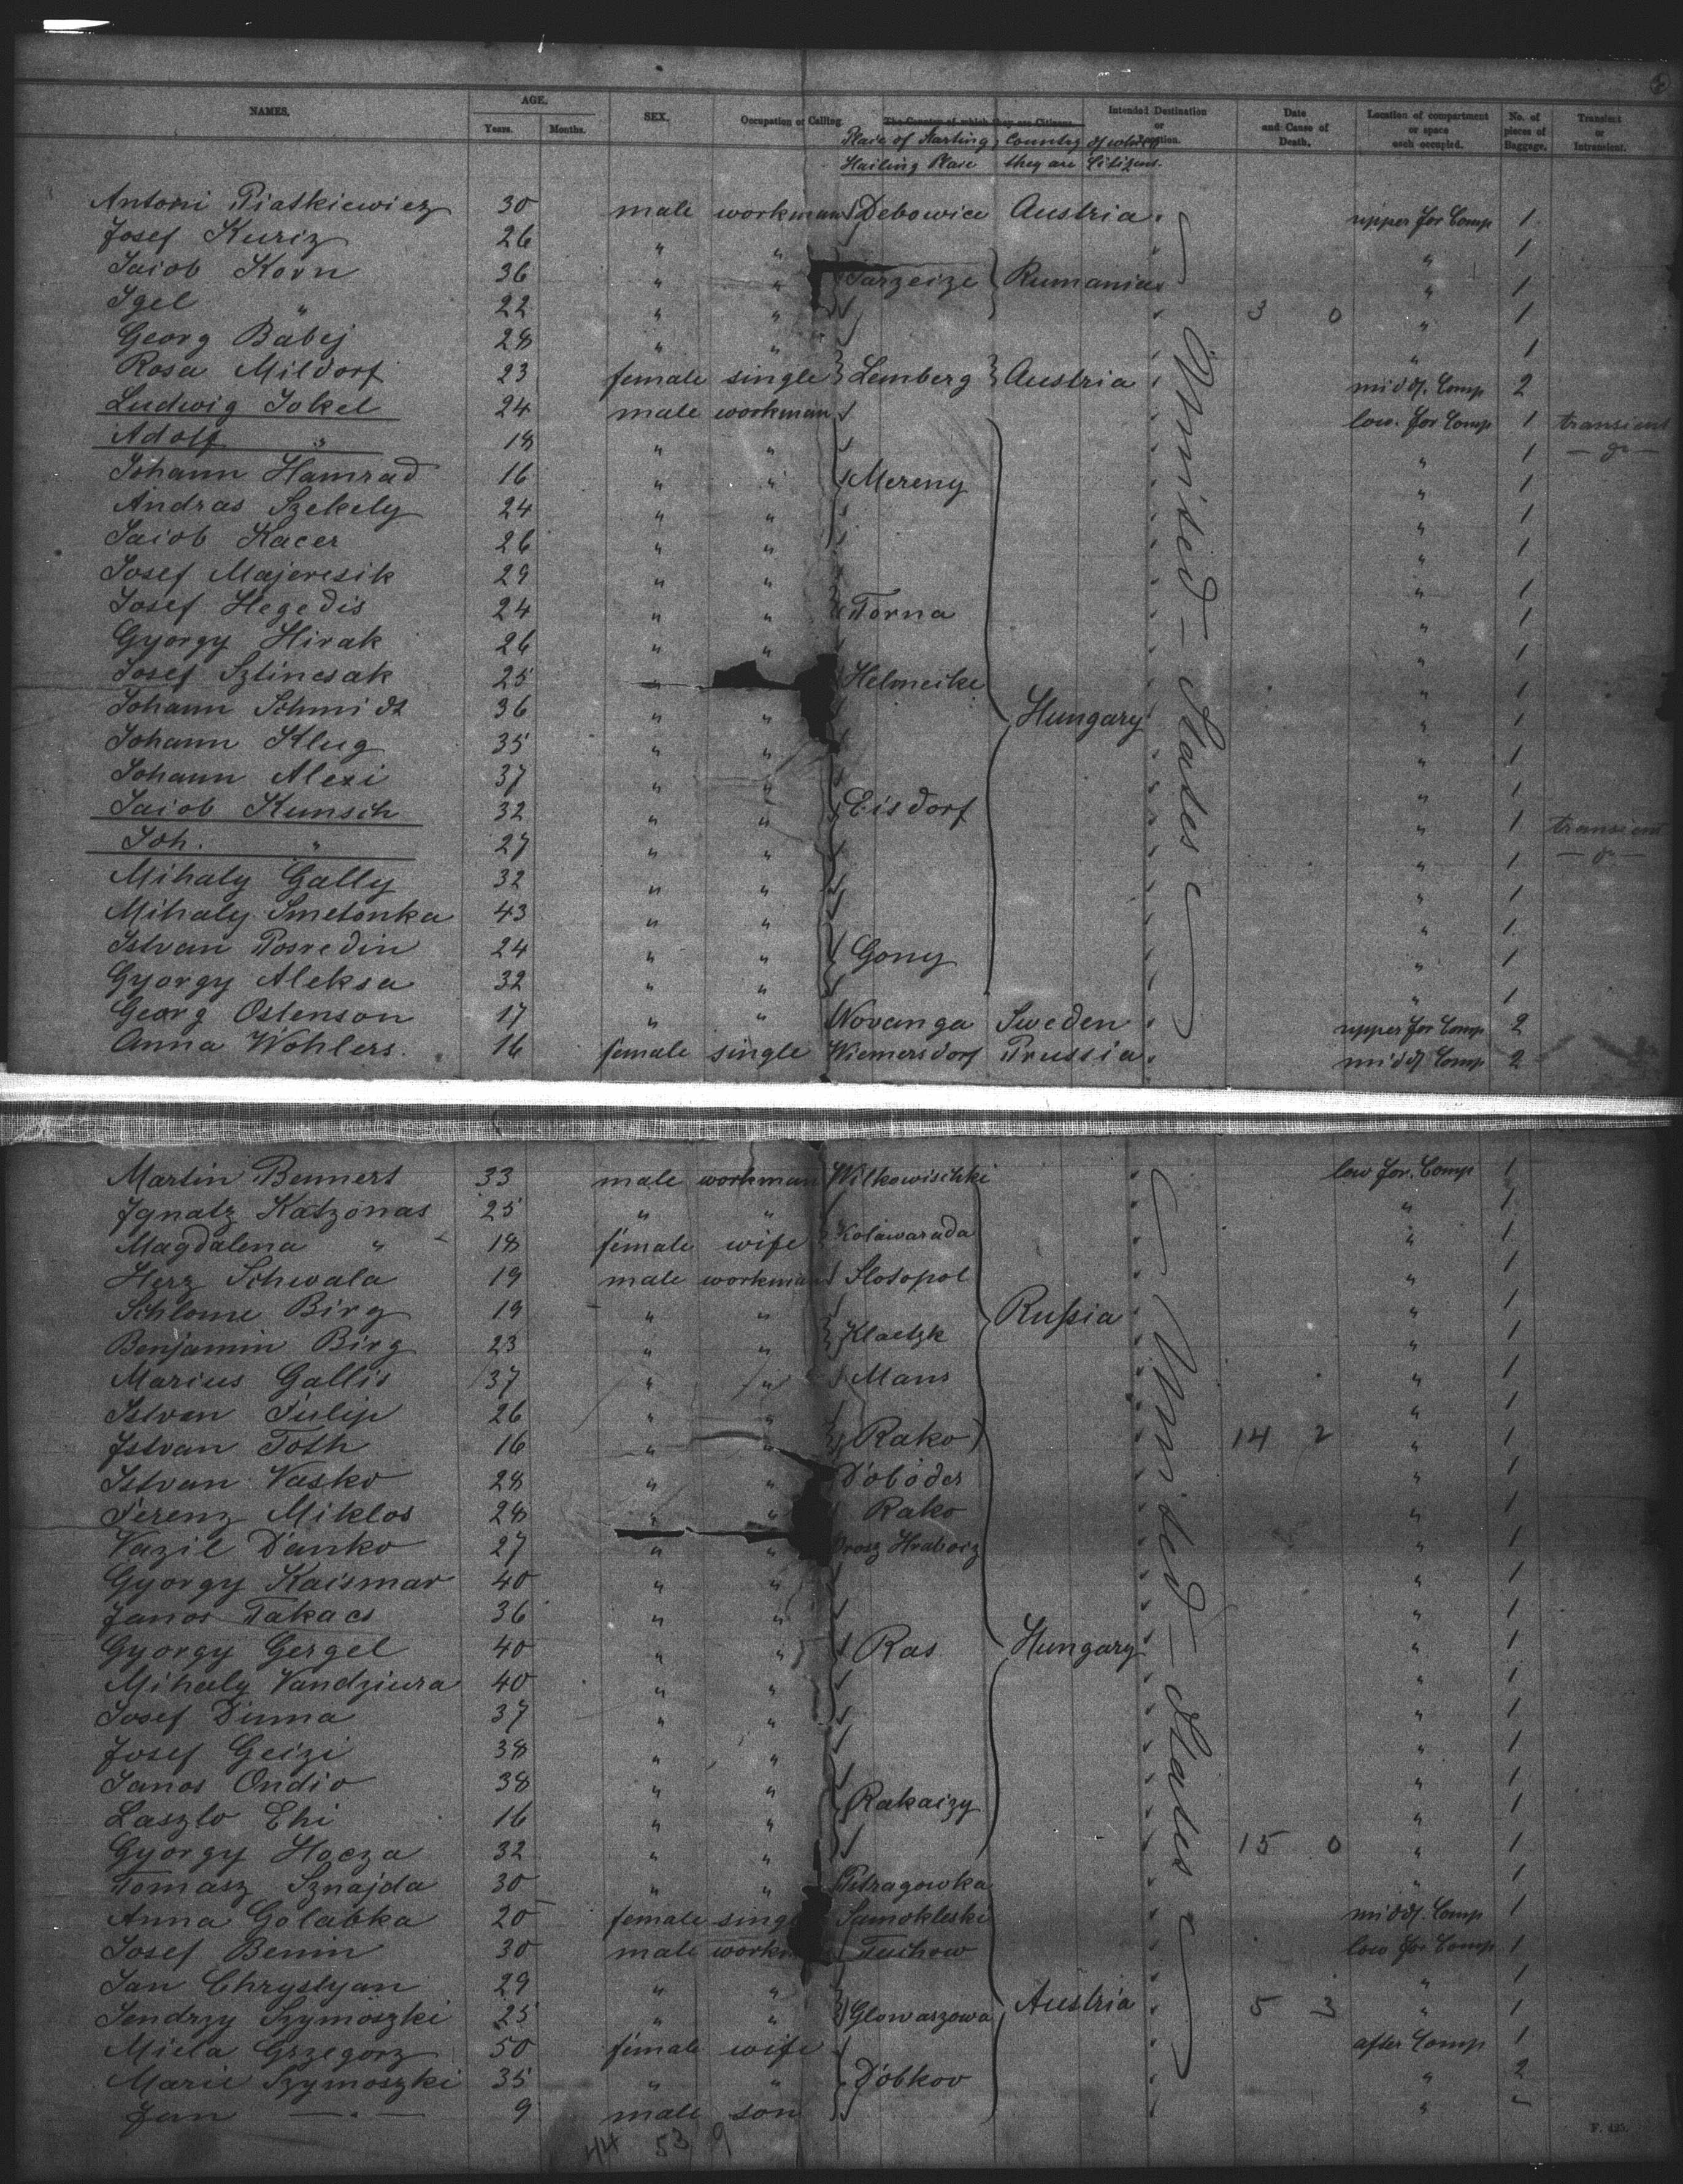 NAMES. AGE. Years. Months. SEX. Occupation or Calling. The Country of which they are Citizens. Intended Destination or Location. Date and Cause of Death. Location of compartment or space each occupied. No. of pieces of Baggage. Transient or Intransient.
Place of Starting Country of which
Hailing Place they are Citizens.
Antoni Piatkiewicz 30 male workman Debowice Austria upper for Comp 1
Josef Kuriz 26 " " " 1
Jacob Korn 36 " " Tarzeize Rumania " 1
Igel " 22 " " 3 0 " 1
Georg Babej 28 " " " 1
Rosa Mildorf 23 female single Lemberg Austria midd. Comp 2
Ludwig Jokel 24 male workman low. for Comp 1 transient
Adolf " 18 " " " 1 — do —
Johann Hamrad 16 " " Mereny " 1
Andras Szekely 24 " " " 1
Jacob Kacer 26 " " " 1
Josef Majeresik 29 " " " 1
Josef Hegedis 24 " " Torna " 1
Gyorgy Hirak 26 " " " 1
Josef Sztincsak 25 " Helmeike " 1
Johann Schmidt 36 " " Hungary " 1
Johann Klug 35 " " " 1
Johann Alexi 37 " " " 1
Jacob Kunsch 32 " " Eisdorf " 1 transient
Joh. " 27 " " " 1 — do —
Mihaly Gally 32 " " " 1
Mihaly Smetonka 43 " " " 1
Istvan Posredin 24 " " Gony " 1
Gyorgy Aleksa 32 " " " 1
Georg Ostenson 17 " " Novanga Sweden upper for Comp 2
Anna Wohlers. 16 female single Wiemersdorf Prussia midd. Comp 2
United States
Martin Bennert 33 male workman Wilkowischki low for. Comp 1
Ignatz Katzonas 25 " " " 1
Magdalena " 18 female wife Kolawarada " 1
Herz Schwala 19 male workman Slotopol " 1
Schlome Birg 19 " " Rußia " 1
Benjamin Birg 23 " " Klaetzk " 1
Marius Gallis 37 " " Mans " 1
Istvan Fulip 26 " " " 1
Istvan Toth 16 " " Rako 14 2 " 1
Istvan Vasko 28 " " Doboder 1
Ferenz Miklos 28 " " Rako " 1
Vazil Danko 27 " " Orosz Hraborz " 1
Gyorgy Kaismar 40 " " " 1
Janos Takacs 36 " " " 1
Gyorgy Gergel 40 " " Ras Hungary " 1
Mihaly Vandziura 40 " " " 1
Josef Dinna 37 " " " 1
Josef Geizi 38 " " " 1
Janos Ondio 38 " " " 1
Laszlo Ehi 16 " " Rakaizy " 1
Gyorgy Hocza 32 " " 15 0 " 1
Tomasz Sznajda 30 " " Petragowka " 1
Anna Golabka 20 female single Samokleski midd. Comp 1
Josef Benin 30 male workman Tuchow low for Comp 1
Jan Chrystyan 29 " " " 1
Jendrzy Szymoszki 25 " " Glowaszowa Austria 5 3 " 1
Miela Grzegorz 50 female wife after Comp 1
Marie Szymoszki 35 " " Dobkov " 2
Jan — " — 9 male son " -
United States
44 53 9
F. 425.